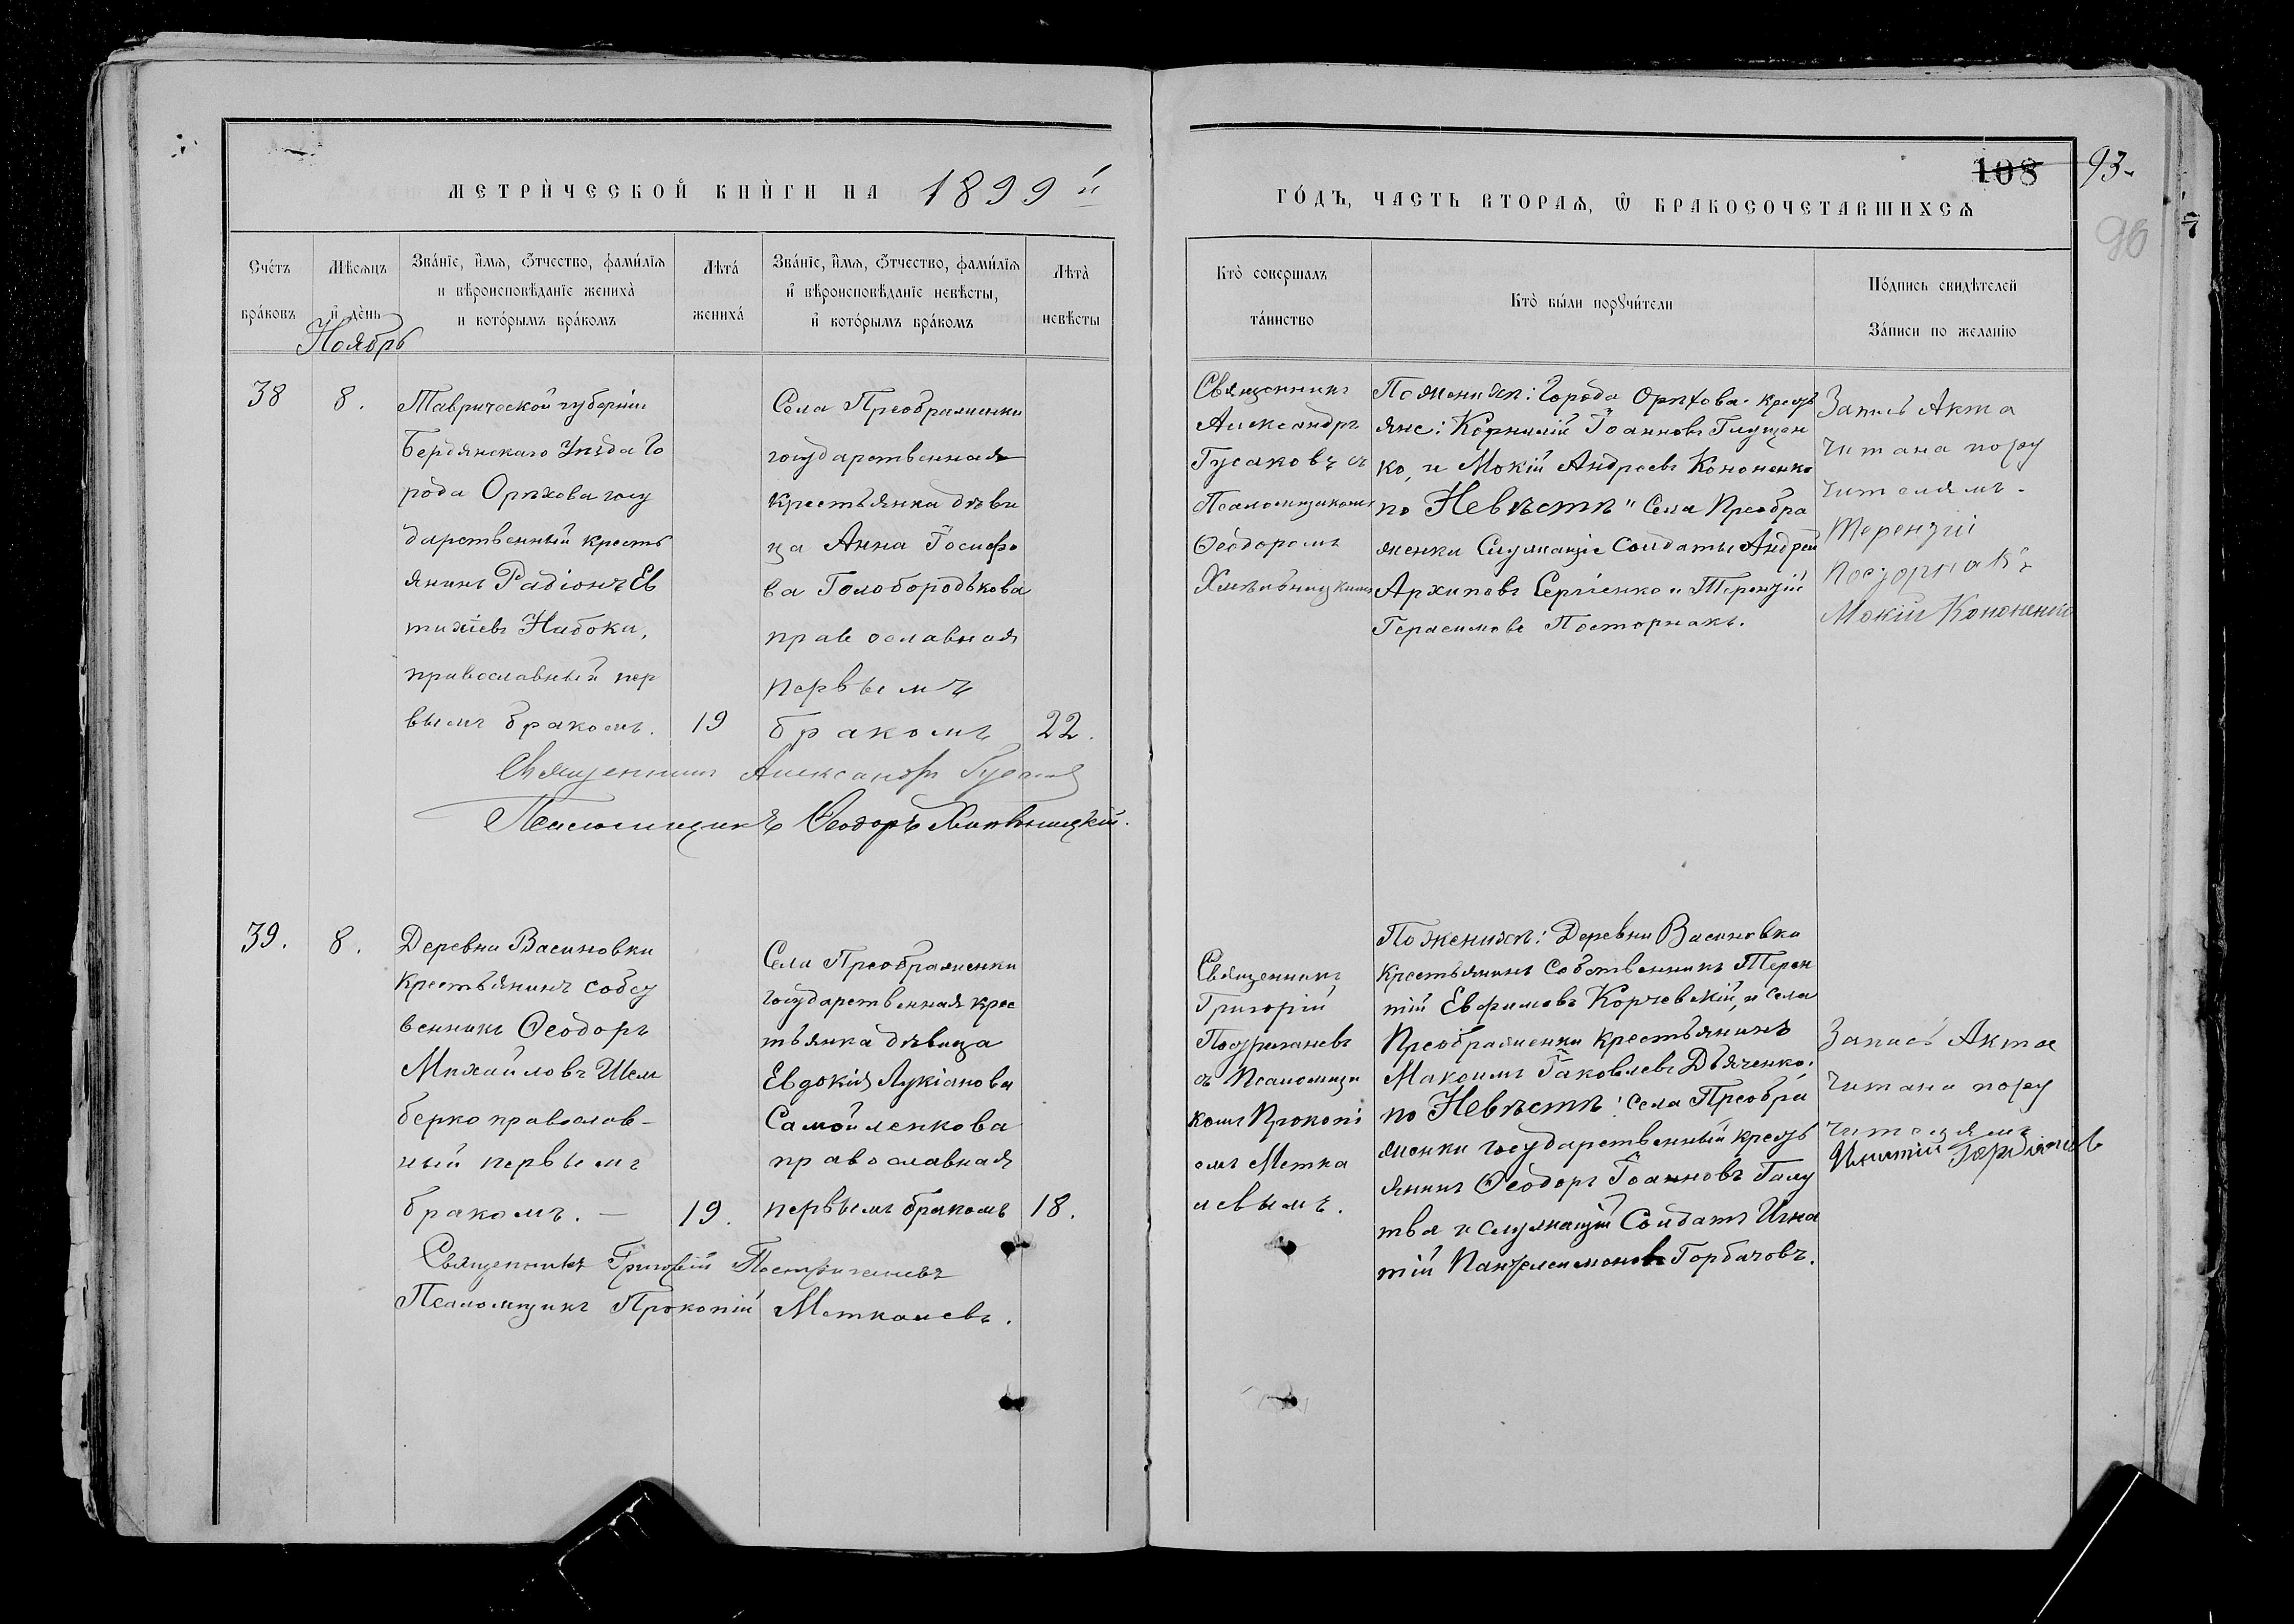 МЕТРИ́ЧЕСКОЙ КНИ́ГИ НА 1899 й
Сче́тъ бра́ковъ
Мѣ́сяцъ и де́нь
Зва́нїе, и́мѧ, ѻ҆́тчество, фами́лїѧ
и вѣроисповѣ́данїе жениха̀
и кото́рымъ бра́комъ
Лѣта́ жениха́
Зва́нїе, и́мѧ, ѻ҆́тчество, фами́лїѧ
и҆ вѣроисповѣ́данїе невѣ́сты,
и҆ кото́рымъ бра́комъ
Лѣта̀ невѣ́сты
Ноябрь
38
8.
Таврической губерніи
Бердянскаго Уѣзда Го
рода Орѣхова госу
дарственный кресть
янинъ Радіонъ Ев
тихіевъ Набока,
православный пер
вымъ бракомъ.
19
Села Преображенки
государственная
крестьянка дѣви
ца Анна Іосифо
ва Голобородькова
православная
первымъ
бракомъ
22.
Священникъ Александръ Гусаковъ
Псаломщикъ Ѳеодоръ Хмѣльницкій.
39.
8.
Деревни Васиновки
крестьянинъ собсу
венникъ Ѳеодоръ
Михайловъ Шем
берко православ-
ный первымъ
бракомъ. —
19.
Села Преображенки
государственная крес
тьянка дѣвица
Евдокія Лукіанова
Самойленкова
православная
первымъ бракомъ
18.
Священникъ Григорій
Псаломщикъ Прокопій Меткалевъ.
108 93.
96
ГО́ДЪ, ЧА́СТЬ ВТОРА́Ѧ, Ѽ БРАКОСОЧЕТА́ВШИХСѦ
Кто̀ соверша́лъ
та́инство
Кто̀ бы́ли порꙋчи́тели
По́дпись свидѣ́телей
За́писи по жела́нїю
Священникъ
Александръ
Гусаковъ съ
Псаломщикомъ
Ѳеодоромъ
Хмѣльницкимъ
По женихѣ: Города Орѣхова кресть
яне: Корнилій Іоанновъ Глущен
ко, и Мокій Андреевъ Кононенко
по Невѣстѣ " Села Преобра
женки Служащіе Солдаты Андрей
Архиповъ Сергіенко и Терентій
Герасимовъ Посторнакъ.
Запись Акта
читана пору
чителямъ.
Терентій
Мокій Кононенко
Священникъ
Григорій
съ Псаломщи
комъ Прокопі
емъ Метка
левымъ.
По женихѣ: Деревни Васиновки
крестьянинъ собственникъ Терен
тій Евфимовъ Корчевскій, и села
Преображенки крестьянинъ
Максимъ Іаковлевъ Дьяченко;
по Невѣстѣ: села Преобра
женки государственный кресть
янинъ Ѳеодоръ Іоанновъ Галу
тва и служащій Солдатъ Игна
тій Пантелеимоновъ Горбачовъ.
Запись Акта
читана пору
чителямъ
Игнатій